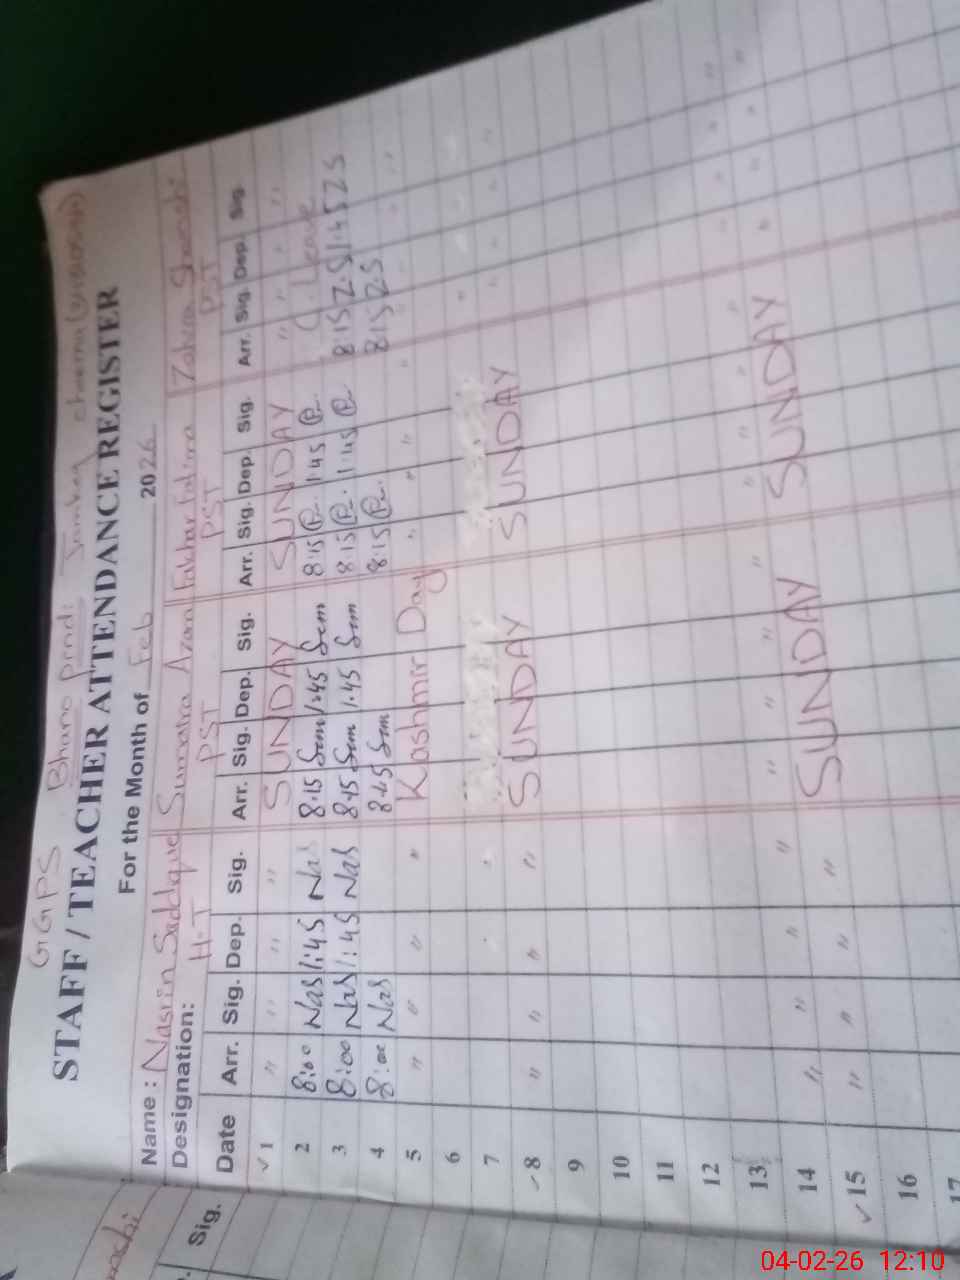 GGPS Bhano pind:
STAFF / TEACHER ATTENDANCE REGISTER
For the Month of Feb 2026
Name: Nasrin Saddque Sumaira Azam Fakhar Fatima Zahira
Designation: H-T PST PST PST
Date Arr. Sig. Dep. Sig. Arr. Sig. Dep. Sig. Arr. Sig. Dep. Sig. Arr. Sig. Dep. Sig.
✓ 1 " " " " SUNDAY SUNDAY " " " "
2 8:00 Nas 1:45 Nas 8:15 Sum 1:45 Sum 8:15 1:45 C. Leave
3 8:00 Nas 1:45 Nas 8:15 Sum 1:45 Sum 8:15 1:45 8:15 Z.S 1:45 Z.S
4 8:00 Nas 8:15 Sum 8:15 8:15 Z.S
5 " " " " Kashmir Day " " "
6
7
✓ 8 " " " " SUNDAY SUNDAY
9
10
11
12
13
14 " " " "
✓ 15 " " " " SUNDAY SUNDAY
16
17
Sig.
04-02-26 12:10